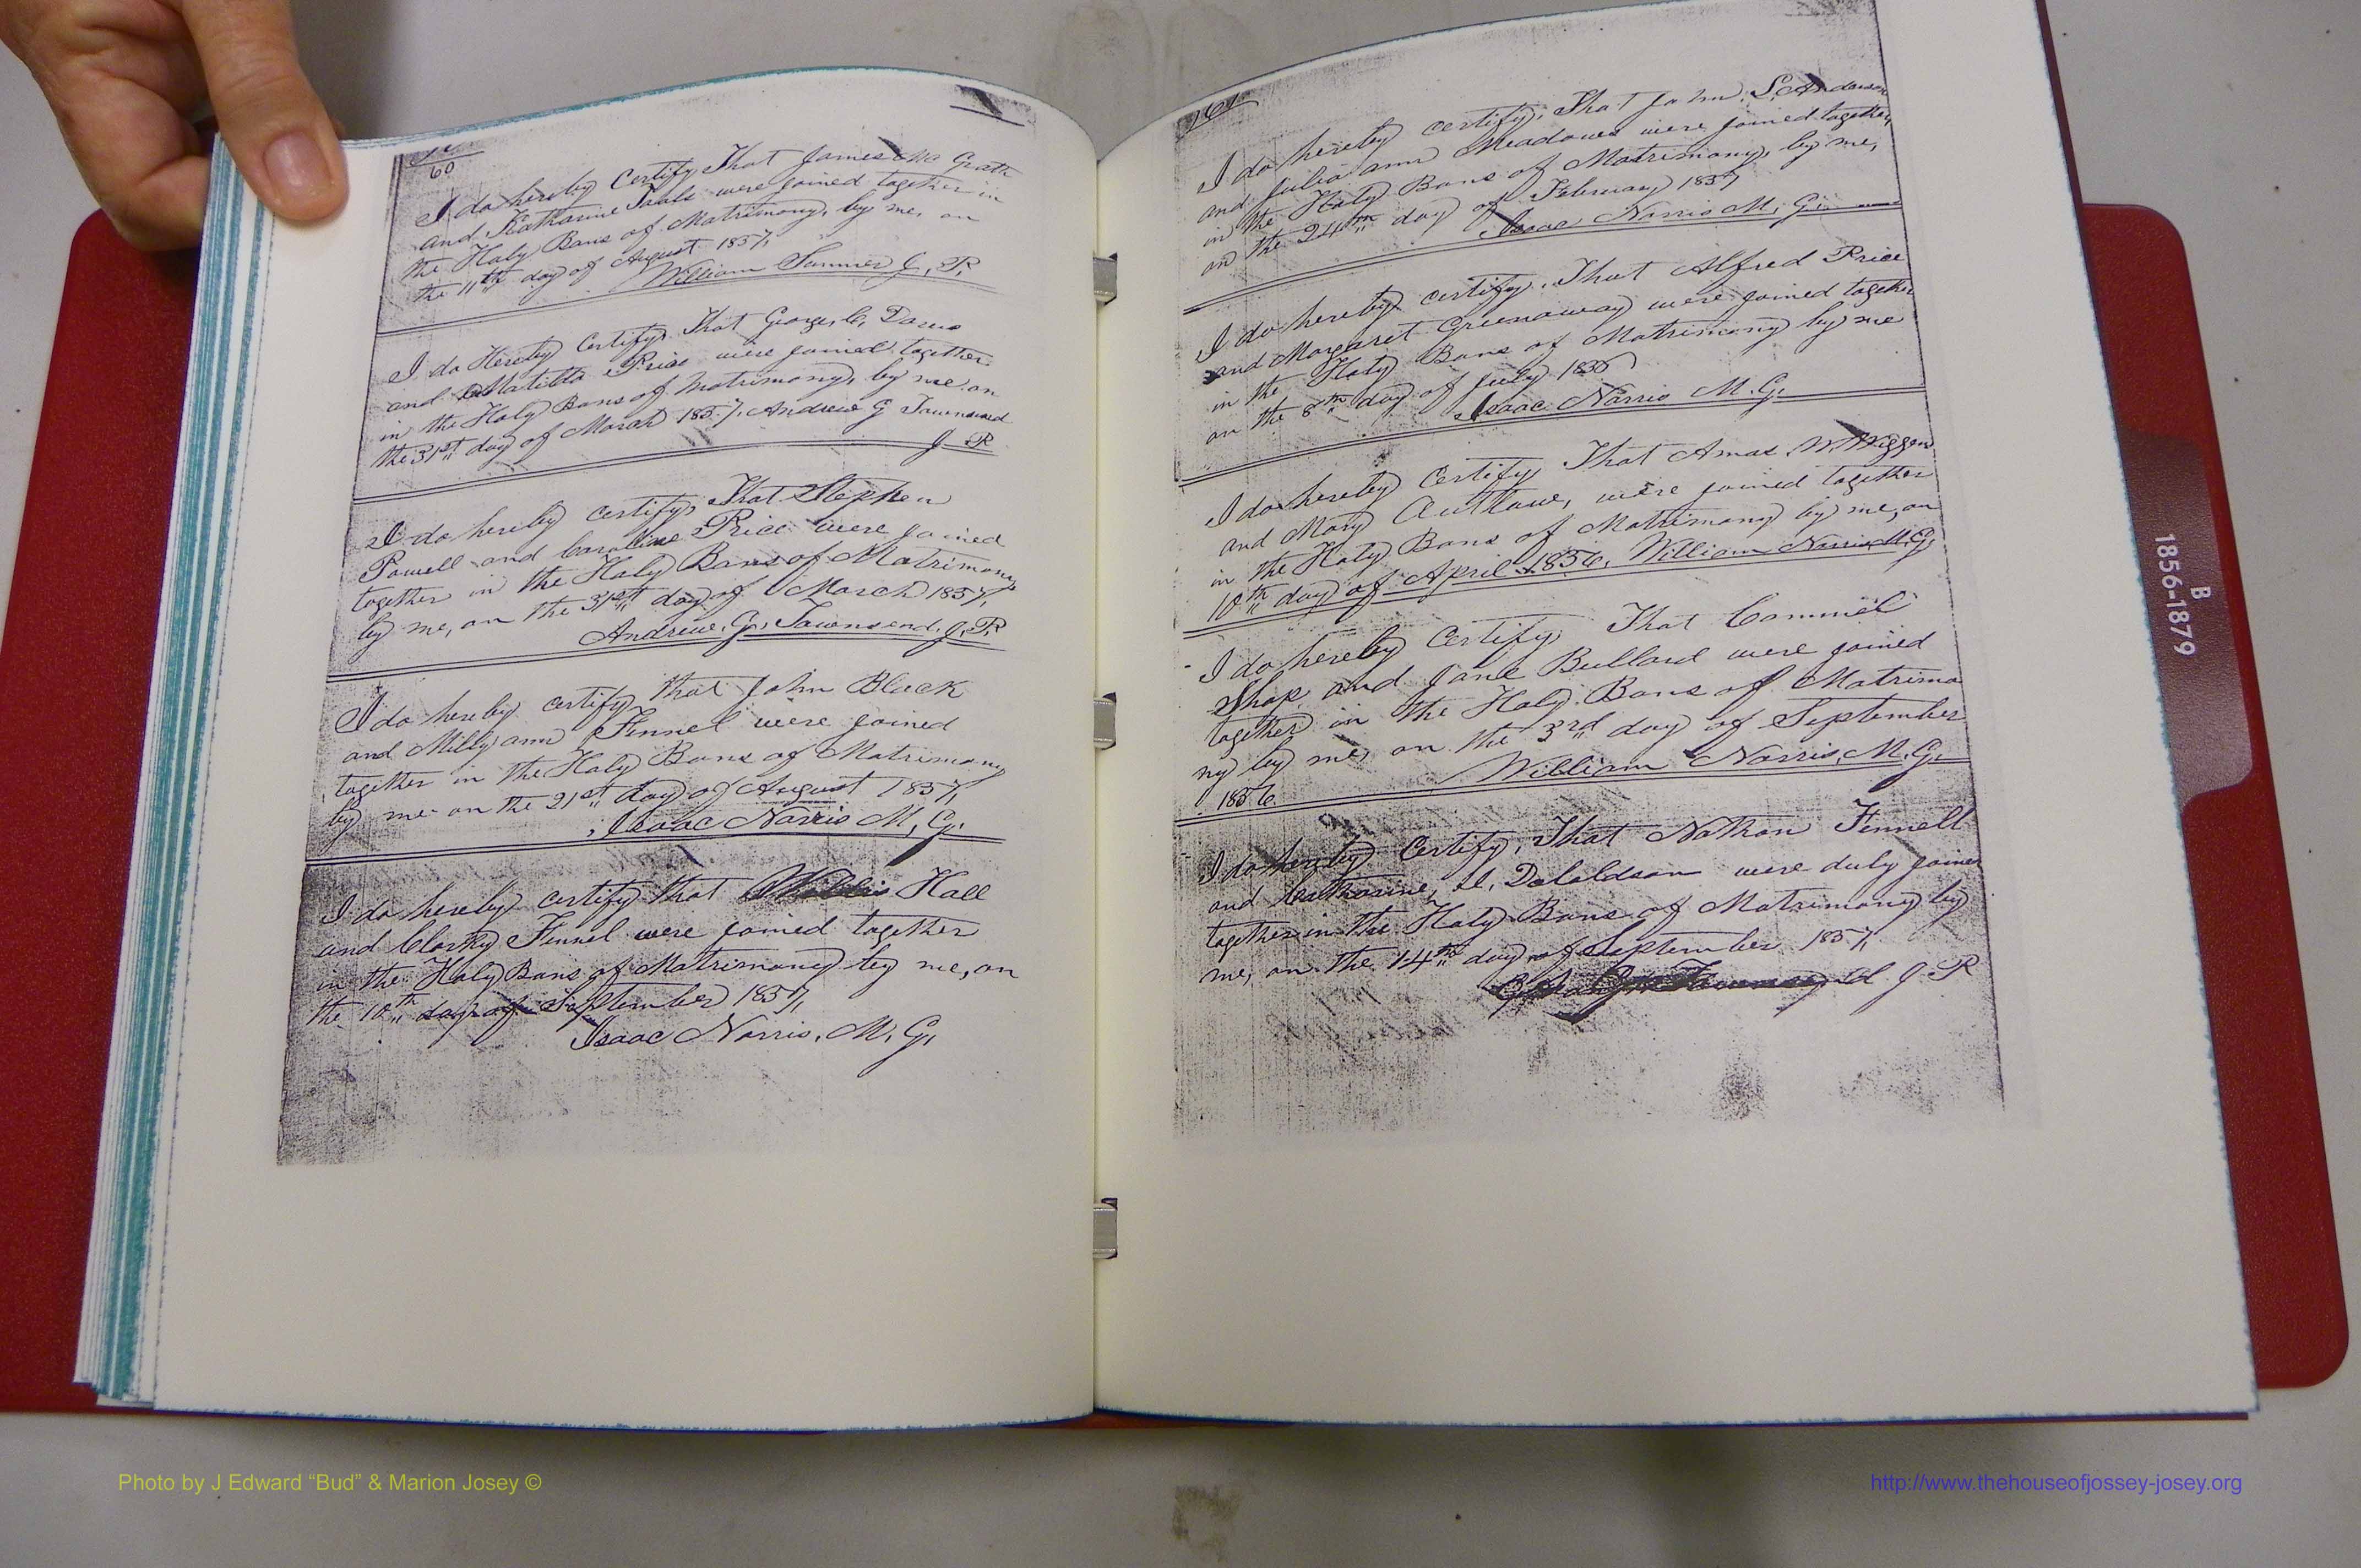 60
I do hereby Certify That James Mc Grath
and Katharine were joined together in
the Holy Bans of Matrimony, by me, on
the 11th day of August 1857,
William Sumner J, P,
I do Hereby Certify, That George, C, Daves
and Matilda Price were joined together
in the Holy Bans of Matrimony, by me on
the 31st day of March 1857, Andrew G Townsend
J P
I do hereby certify, That Stephen
Powell and Caroline Price were joined
together in the Holy Bans of Matrimony
by me, on the 31st day of March 1857,
Andrew. G, Townsend. J,P,
I do hereby certify, that John Black
and Milly ann Fennel were joined
together in the Holy Bans of Matrimony
by me on the 21st day of August 1857,
Isaac Norris M, G.
I do hereby certify that Hall
and Clarky Fennel were joined together
in the Holy Bans of Matrimony by me, on
the 10th day of September 1857,
Isaac Norris, M, G,
61
I do hereby certify, That John, S, Andauson
and Julia ann Meadows were joined together,
in the Holy Bans of Matrimony, by me,
on the 24th day of February 1857
Isaac Norris M, G,
I do hereby certify, That Alfred Price
and Margaret Greenaway were joined together
in the Holy Bans of Matrimony by me
on the 8th day of July 1856
Isaac Norris M. G.
I do hereby Certify That Amos W. Wiggins
and Mary Outlaw, were joined together
in the Holy Bans of Matrimony by me, on
10th day of April 1856, William Norris M. G,
I do hereby Certify, That
Shop, and Jane Bullard were joined
together in the Holy Bans of Matrimo
ny by me, on the 3rd day of September
William Norris, M. G,
1856.
I do hereby Certify, That Nathan Fennell
and Catharine, were duly joined
together in the Holy Bans of Matrimony by
me, on the 14th day of September 1857,
J P
B
1856-1879
Photo by J Edward “Bud” & Marion Josey ©
http://www.thehouseofjossey-josey.org